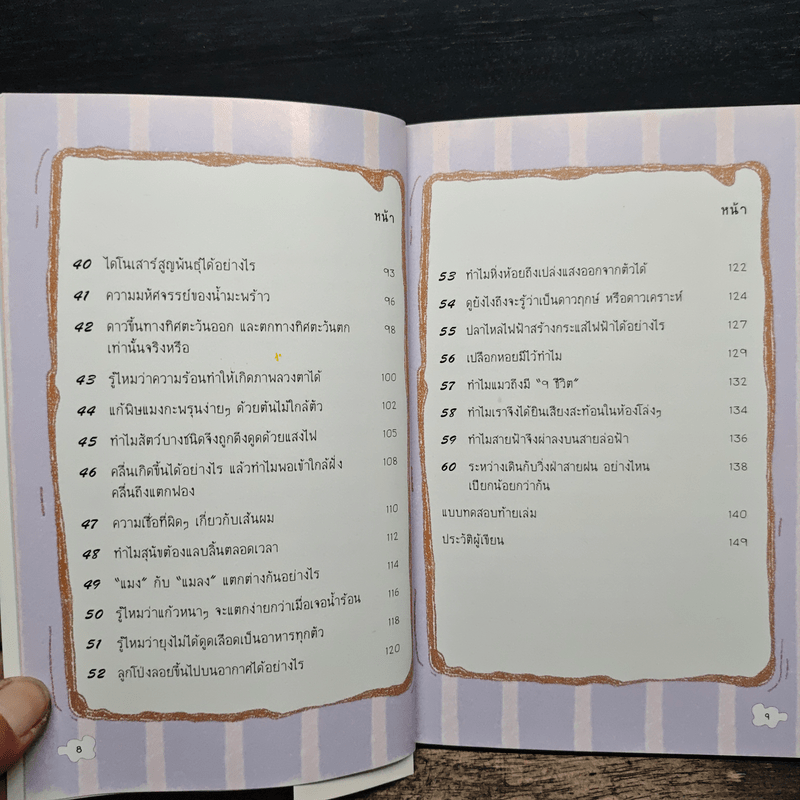 หน้า
40 ไดโนเสาร์สูญพันธุ์ได้อย่างไร 93
41 ความมหัศจรรย์ของน้ำมะพร้าว 96
42 ดาวขึ้นทางทิศตะวันออก และตกทางทิศตะวันตก 98
เท่านั้นจริงหรือ
43 รู้ไหมว่าความร้อนทำให้เกิดภาพลวงตาได้ 100
44 แก้พิษแมงกะพรุนง่ายๆ ด้วยต้นไม้ใกล้ตัว 102
45 ทำไมสัตว์บางชนิดจึงถูกดึงดูดด้วยแสงไฟ 105
46 คลื่นเกิดขึ้นได้อย่างไร แล้วทำไมพอเข้าใกล้ฝั่ง 108
คลื่นถึงแตกฟอง
47 ความเชื่อที่ผิดๆ เกี่ยวกับเส้นผม 110
48 ทำไมสุนัขต้องแลบลิ้นตลอดเวลา 112
49 "แมง" กับ "แมลง" แตกต่างกันอย่างไร 114
50 รู้ไหมว่าแก้วหนาๆ จะแตกง่ายกว่าเมื่อเจอน้ำร้อน 116
51 รู้ไหมว่ายุงไม่ได้ดูดเลือดเป็นอาหารทุกตัว 118
52 ลูกโป่งลอยขึ้นไปบนอากาศได้อย่างไร 120
8
หน้า
53 ทำไมหิ่งห้อยถึงเปล่งแสงออกจากตัวได้ 122
54 ดูยังไงถึงจะรู้ว่าเป็นดาวฤกษ์ หรือดาวเคราะห์ 124
55 ปลาไหลไฟฟ้าสร้างกระแสไฟฟ้าได้อย่างไร 127
56 เปลือกหอยมีไว้ทำไม 129
57 ทำไมแมวถึงมี "๙ ชีวิต" 132
58 ทำไมเราจึงได้ยินเสียงสะท้อนในห้องโล่งๆ 134
59 ทำไมสายฟ้าจึงผ่าลงบนสายล่อฟ้า 136
60 ระหว่างเดินกับวิ่งฝ่าสายฝน อย่างไหน 138
เปียกน้อยกว่ากัน
แบบทดสอบท้ายเล่ม 140
ประวัติผู้เขียน 149
9